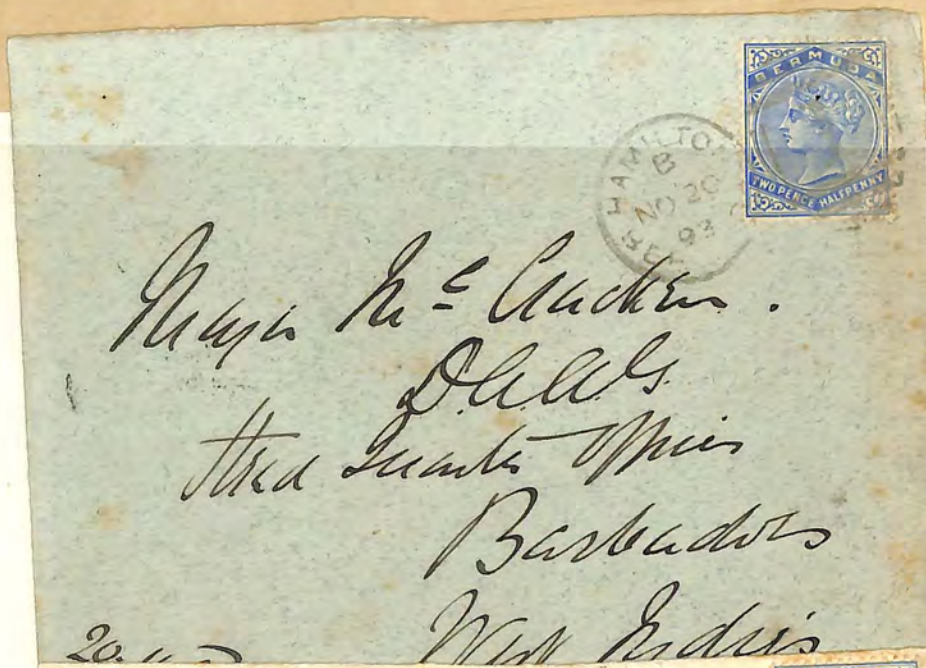 BERMUDA
TWO PENCE HALFPENNY
HAMILTON
B
NO 20
93
BER
Major McCracken.
D.A.A.G.
Head Quarter Office
Barbados
West Indies